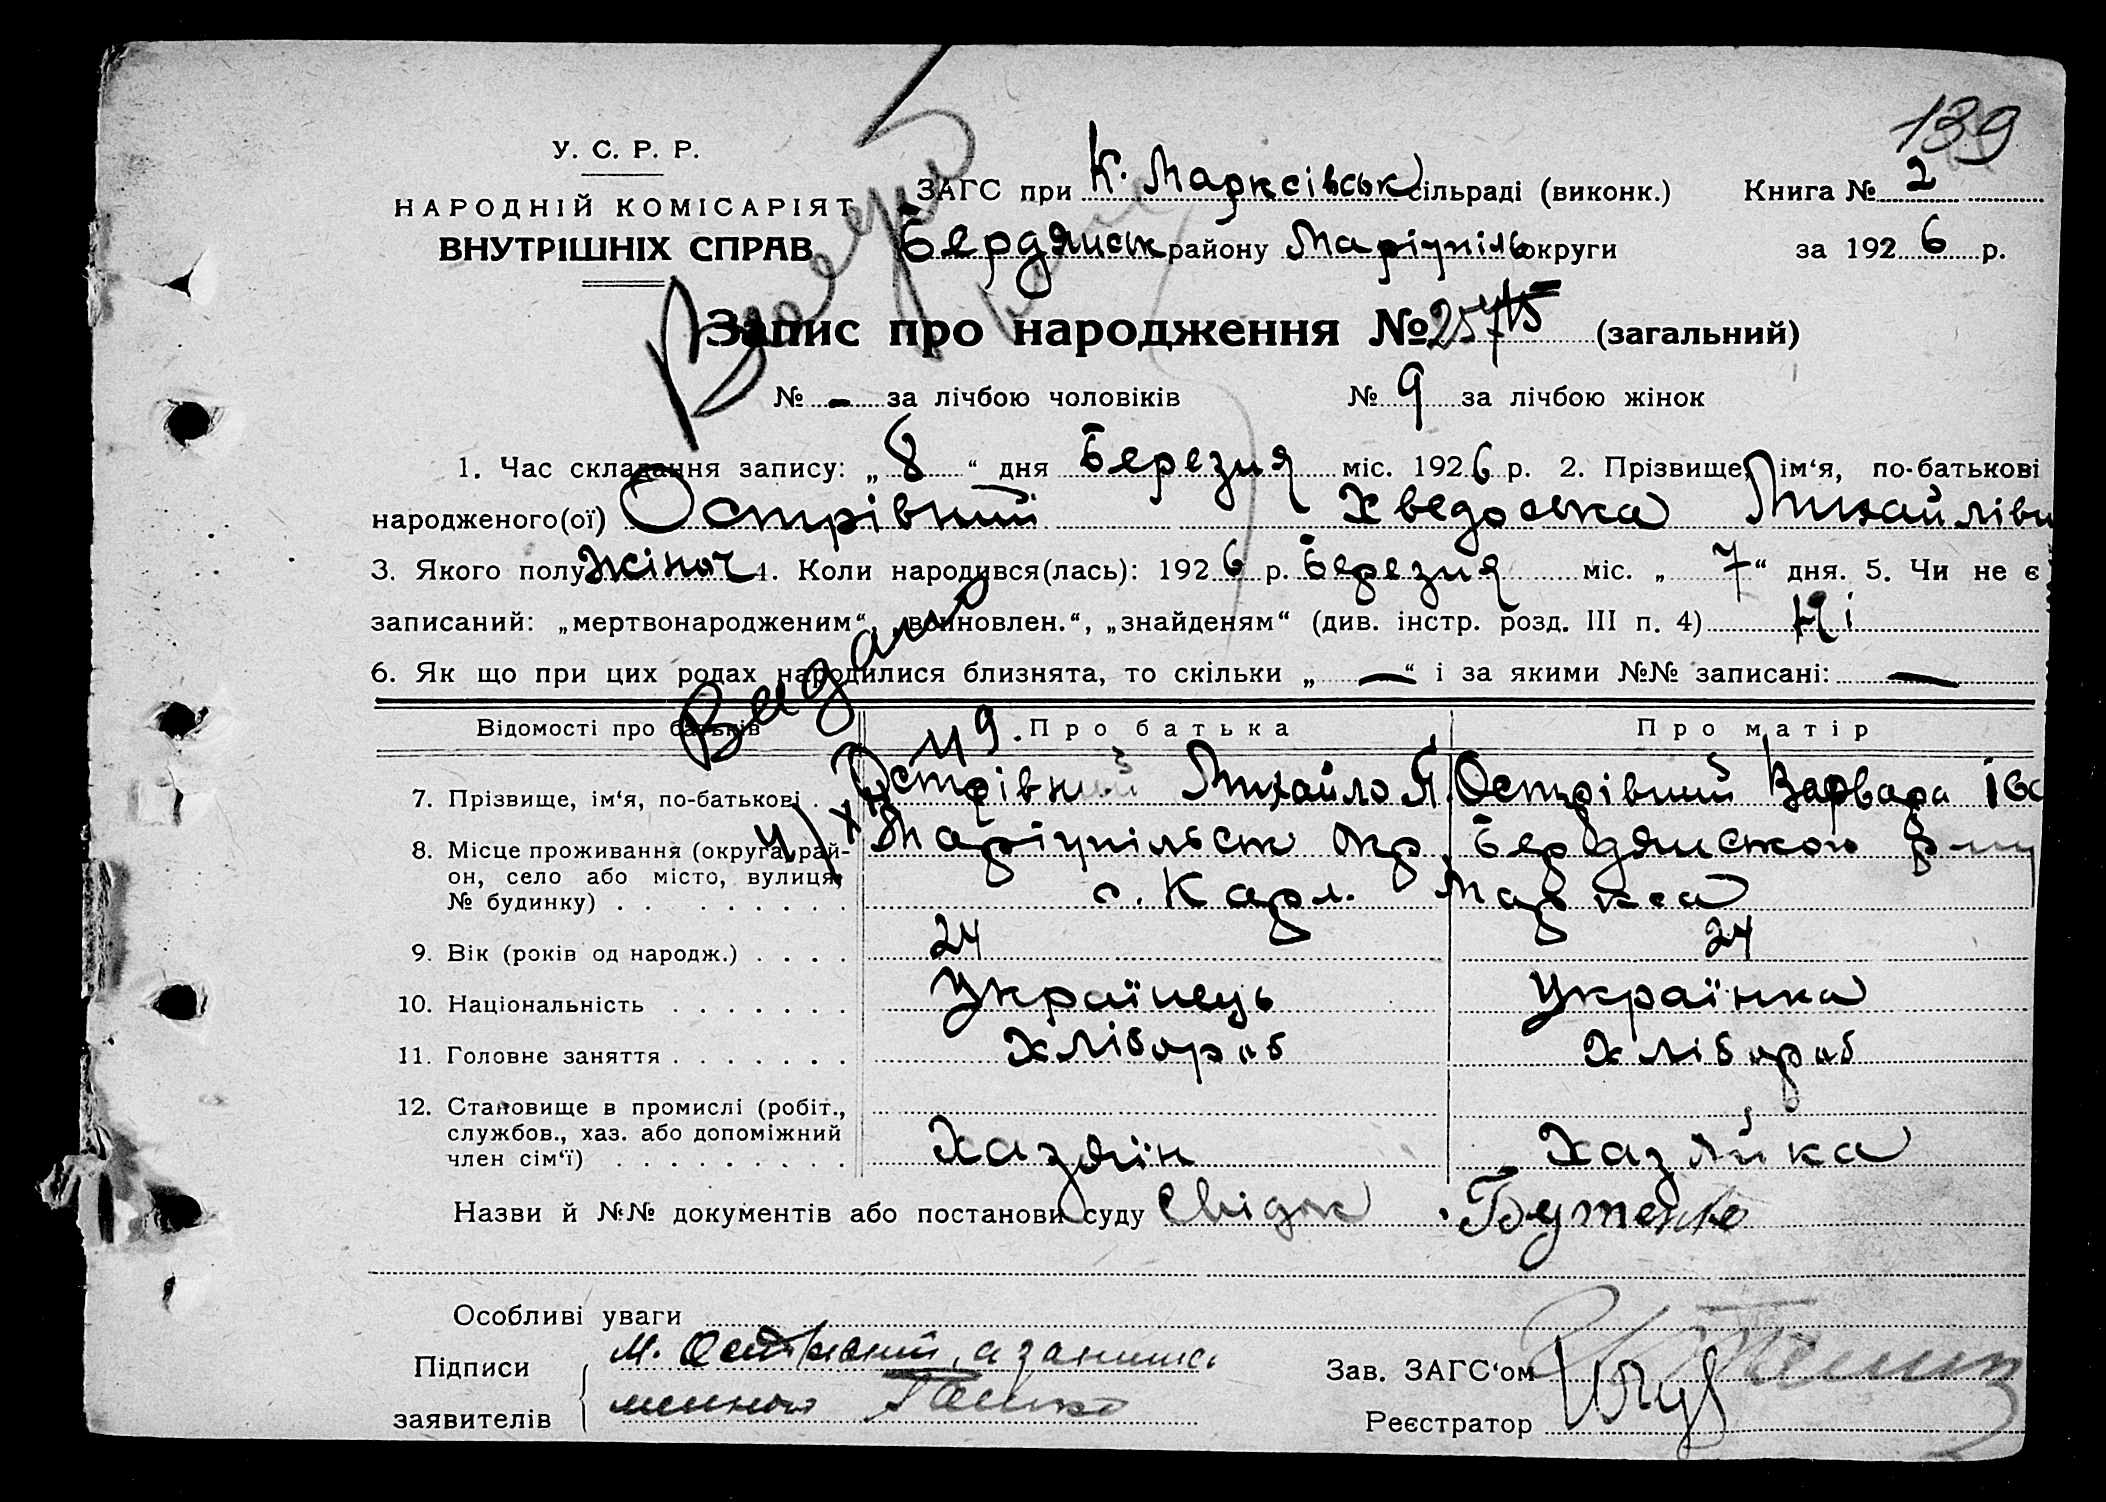 139
У. С. Р. Р.
НАРОДНІЙ КОМІСАРІЯТ
ВНУТРІШНІХ СПРАВ
ЗАГС при К. Марксівськ сільраді (виконк.) Книга № 2
Бердянськ району Маріупіль округи за 1926 р.
Запис про народження № (загальний)
№ - за лічбою чоловіків № 9 за лічбою жінок
1. Час складання запису: „8“ дня Березня міс. 1926 р. 2. Прізвище, ім‘я, по-батькові
народженого(ої) Острівний Хведоська Михайлівн
3. Якого полу жіноч 4. Коли народився(лась): 1926 р. Березня міс. „7“ дня. 5. Чи не є
записаний: „мертвонародженим“, „вчиновлен.“, „знайденям“ (див. інстр. розд. III п. 4) Ні
6. Як що при цих родах народилися близнята, то скільки „—“ і за якими №№ записані: —
Видано
Відомості про батьків Про батька Про матір
7. Прізвище, ім‘я, по-батькові Острівний Михайло Я. Острівний Варвара Іва
8. Місце проживання (округа, рай- Маріупільськ окр. Бердянського р-ну
он, село або місто, вулиця,
№ будинку) с. Карл. Маркса
9. Вік (років од народж.) 24 24
10. Національність Українець Українка
11. Головне заняття Хлібороб Хлібороб
12. Становище в промислі (робіт.,
службов., хаз. або допоміжний
член сім‘ї) Хазяїн Хазяйка
Назви й №№ документів або постанови суду Свідок Бутенко
Особливі уваги
Підписи М. Острівний, а
заявителів
Зав. ЗАГС‘ом
Реєстратор